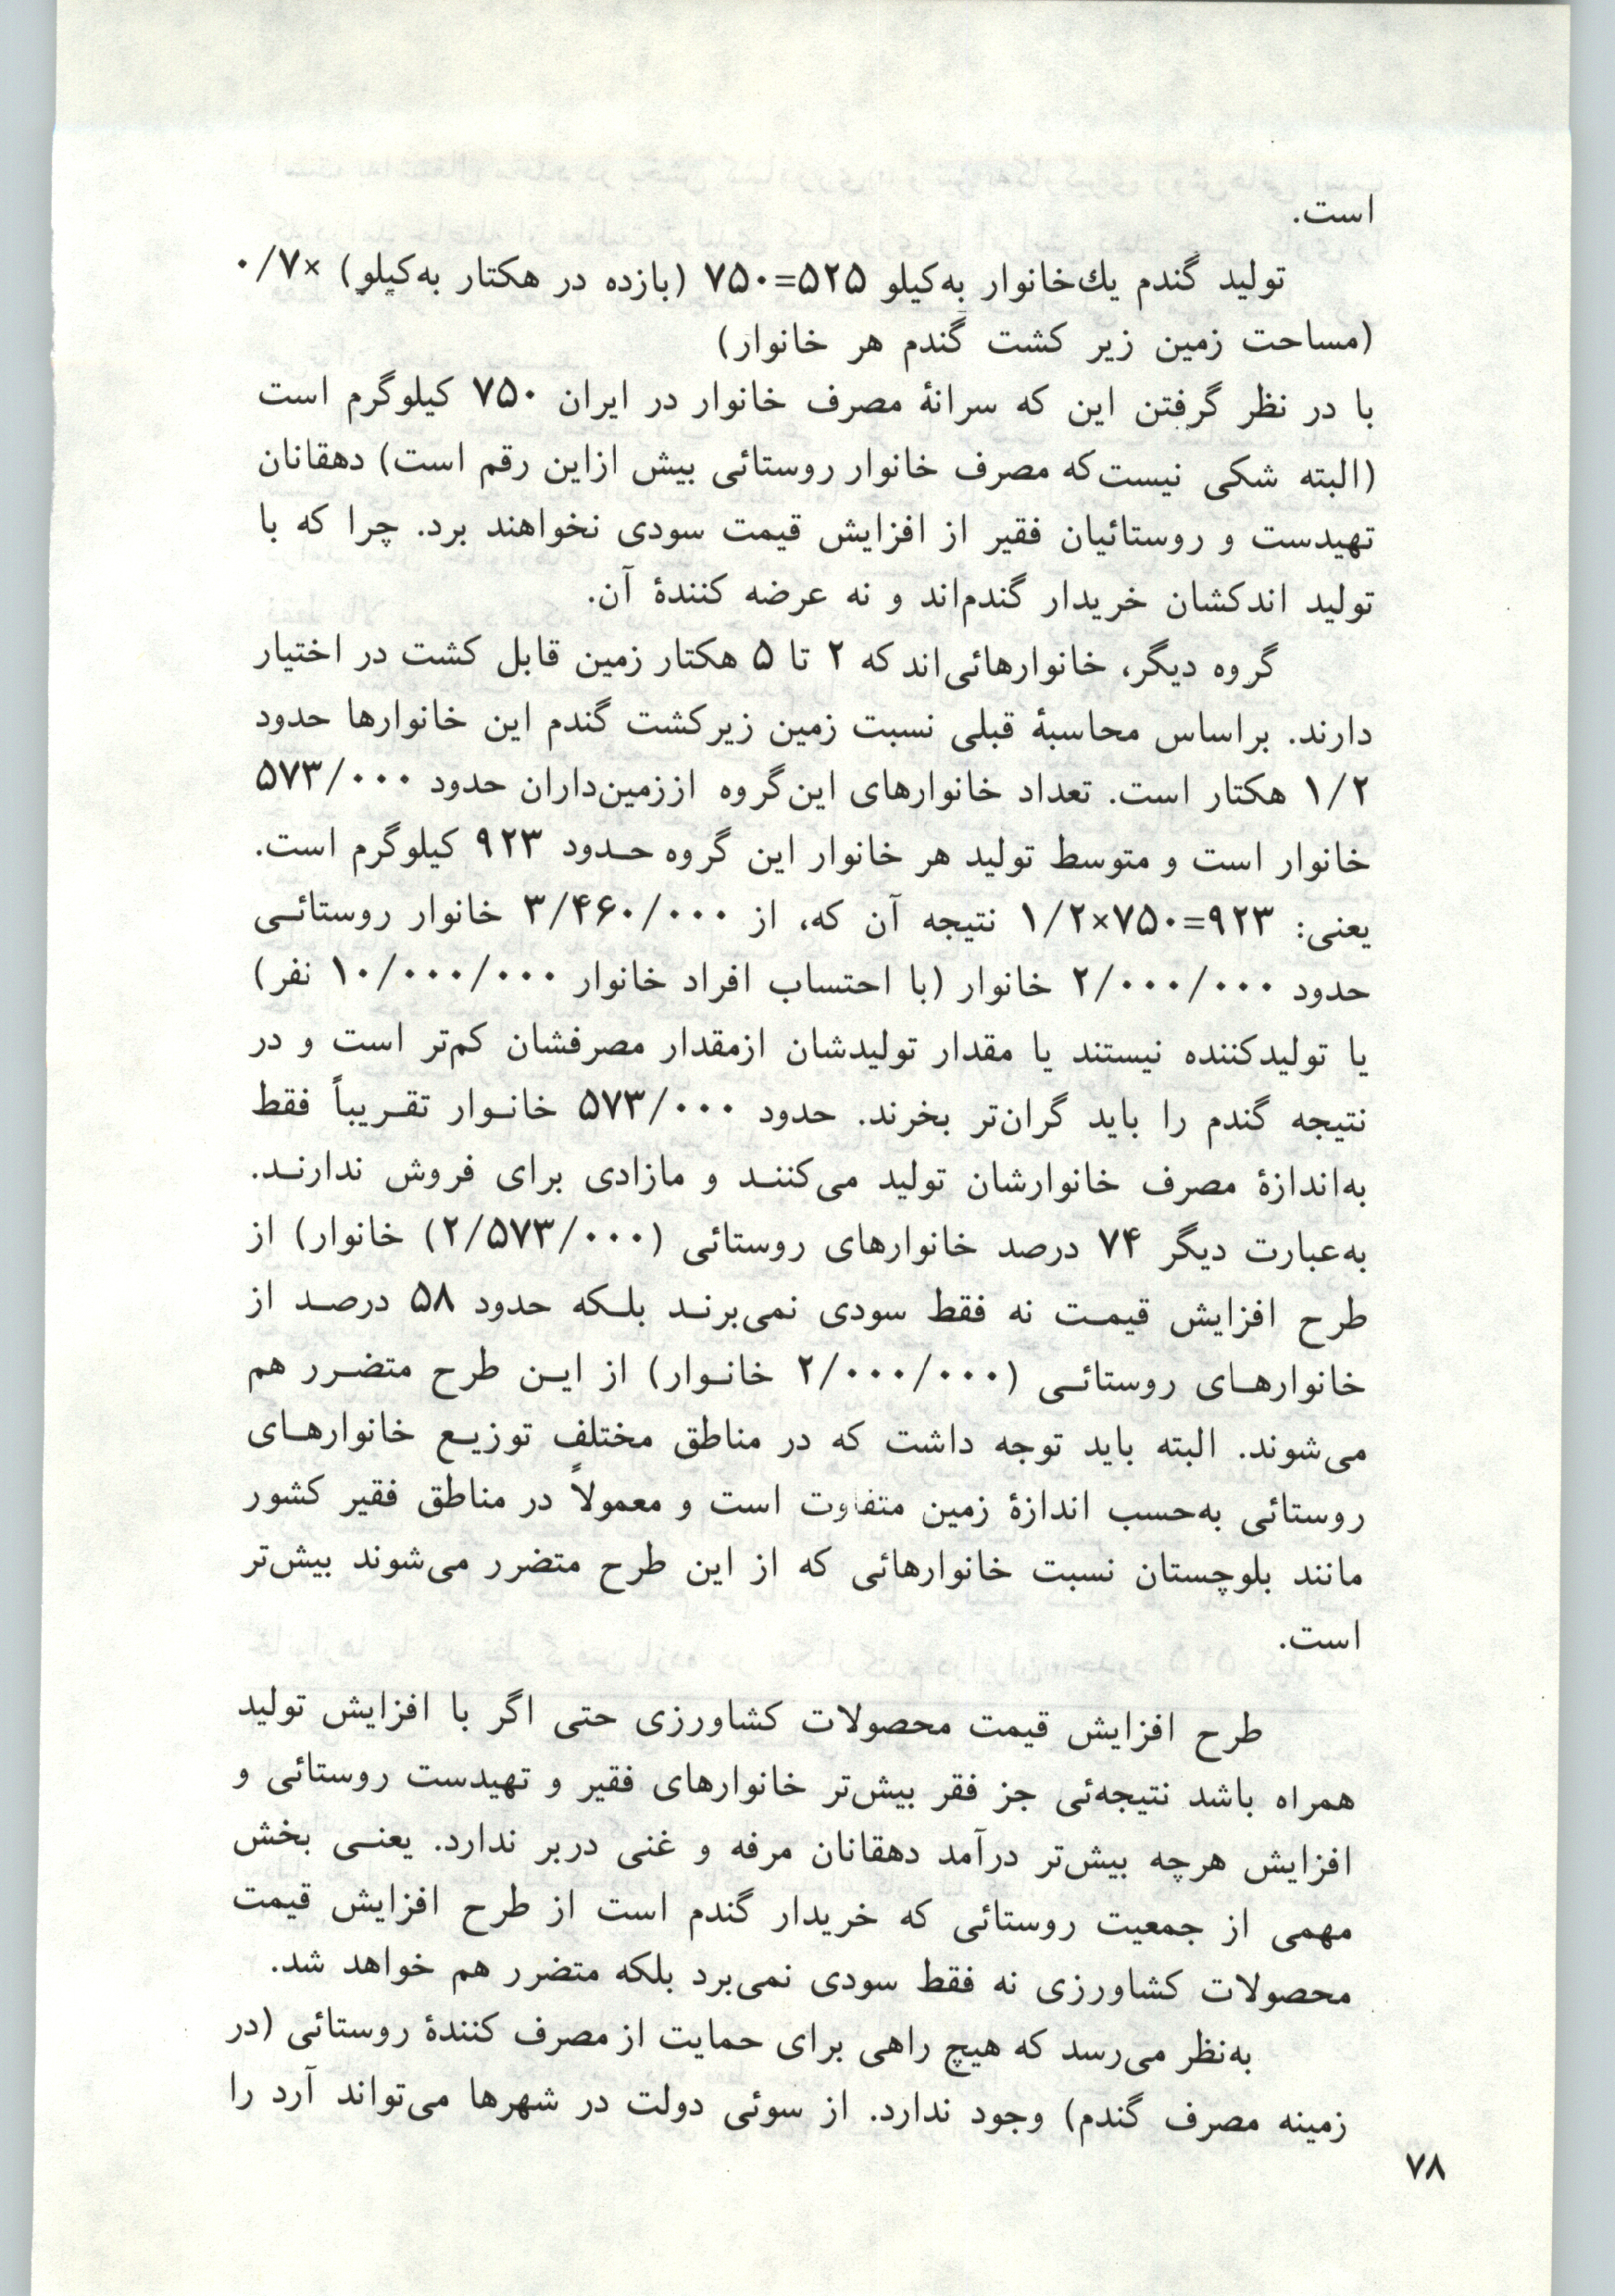 است.
تولید گندم یك‌خانوار به‌کیلو ۵۲۵=۷۵۰ (بازده در هکتار به‌کیلو) ×۰/۷
(مساحت زمین زیر کشت گندم هر خانوار)
با در نظر گرفتن این که سرانهٔ مصرف خانوار در ایران ۷۵۰ کیلوگرم است
(البته شکی نیست‌که مصرف خانوار روستائی بیش ازاین رقم است) دهقانان
تهیدست و روستائیان فقیر از افزایش قیمت سودی نخواهند برد. چرا که با
تولید اندکشان خریدار گندم‌اند و نه عرضه کنندهٔ آن.
گروه دیگر، خانوارهائی‌اند که ۲ تا ۵ هکتار زمین قابل کشت در اختیار
دارند. براساس محاسبهٔ قبلی نسبت زمین زیرکشت گندم این خانوارها حدود
۱/۲ هکتار است. تعداد خانوارهای این‌گروه اززمین‌داران حدود ۵۷۳/۰۰۰
خانوار است و متوسط تولید هر خانوار این گروه حـدود ۹۲۳ کیلوگرم است.
یعنی: ۹۲۳=۷۵۰×۱/۲ نتیجه آن که، از ۳/۴۶۰/۰۰۰ خانوار روستائـی
حدود ۲/۰۰۰/۰۰۰ خانوار (با احتساب افراد خانوار ۱۰/۰۰۰/۰۰۰ نفر)
یا تولیدکننده نیستند یا مقدار تولیدشان ازمقدار مصرفشان کم‌تر است و در
نتیجه گندم را باید گران‌تر بخرند. حدود ۵۷۳/۰۰۰ خانـوار تقـریباً فقط
به‌اندازهٔ مصرف خانوارشان تولید می‌کننـد و مازادی برای فروش ندارنـد.
به‌عبارت دیگر ۷۴ درصد خانوارهای روستائی (۲/۵۷۳/۰۰۰) خانوار) از
طرح افزایش قیمـت نه فقط سودی نمی‌برنـد بلـکه حدود ۵۸ درصـد از
خانوارهـای روستائـی (۲/۰۰۰/۰۰۰ خانـوار) از ایـن طرح متضـرر هم
می‌شوند. البته باید توجه داشت که در مناطق مختلف توزیـع خانوارهـای
روستائی به‌حسب اندازهٔ زمین متفاوت است و معمولاً در مناطق فقیر کشور
مانند بلوچستان نسبت خانوارهائی که از این طرح متضرر می‌شوند بیش‌تر
است.
طرح افزایش قیمت محصولات کشاورزی حتی اگر با افزایش تولید
همراه باشد نتیجه‌ئی جز فقر بیش‌تر خانوارهای فقیر و تهیدست روستائی و
افزایش هرچه بیش‌تر درآمد دهقانان مرفه و غنی دربر ندارد. یعنـی بخش
مهمی از جمعیت روستائی که خریدار گندم است از طرح افزایش قیمت
محصولات کشاورزی نه فقط سودی نمی‌برد بلکه متضرر هم خواهد شد.
به‌نظر می‌رسد که هیچ راهی برای حمایت از مصرف کنندهٔ روستائی (در
زمینه مصرف گندم) وجود ندارد. از سوئی دولت در شهرها می‌تواند آرد را
۷۸